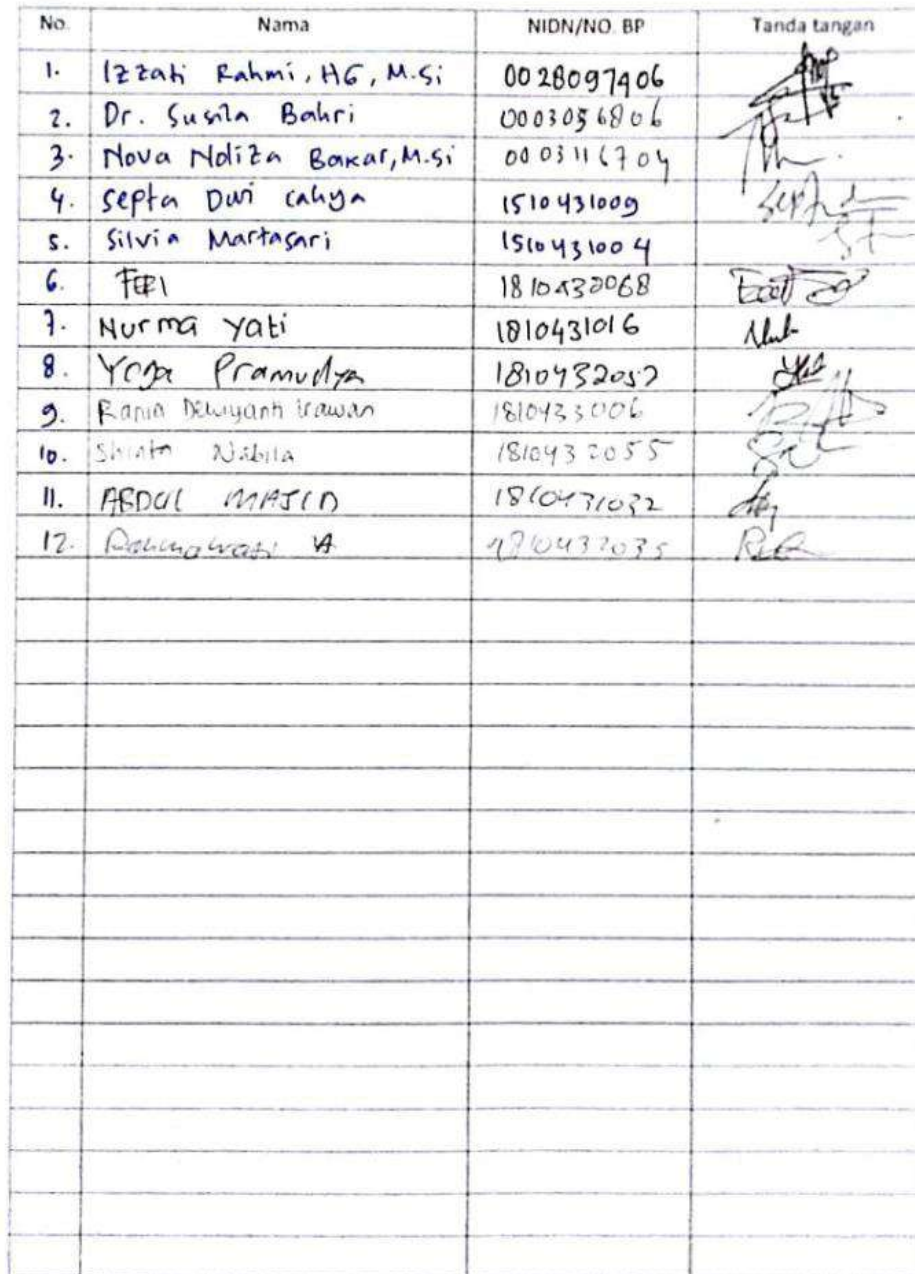 No. Nama NIDN/NO. BP Tanda tangan
1. Izzati Rahmi, HG, M.Si 0028097406
2. Dr. Susila Bahri 0003056806
3. Nova Noliza Bakar, M.Si 0003116704
4. Septa Dwi Cahya 1510431009
5. Silvia Martasari 1510431004
6. FERI 1810432068
7. Nurma Yati 1810431016
8. Yoga Pramudya 1810432052
9. Rania Dewiyanti Irawan 1810433006
10. Shinta Nabila 1810432055
11. ABDUL MAJID 1810431032
12. Rahmawati A 1810432035